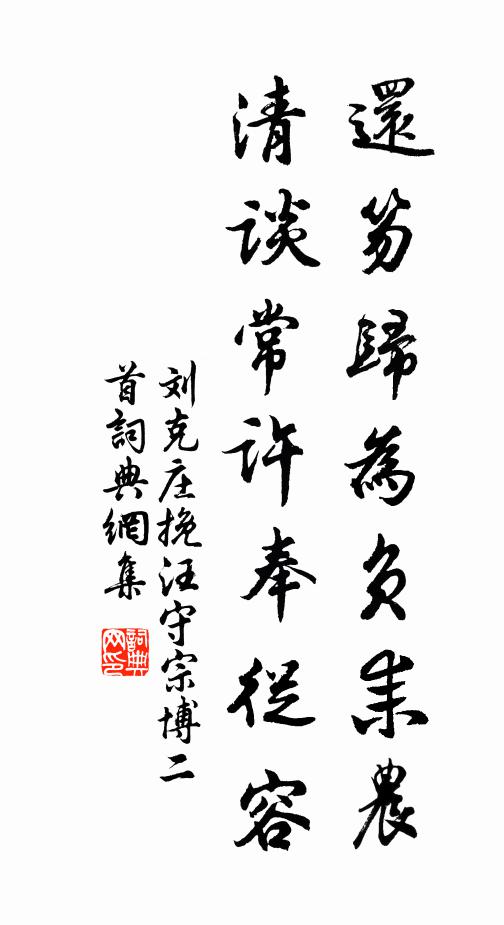 還笏歸為負耒農
清談常許奉從容
刘克庄挽汪守宗博二
首詞典網集
詞典网印